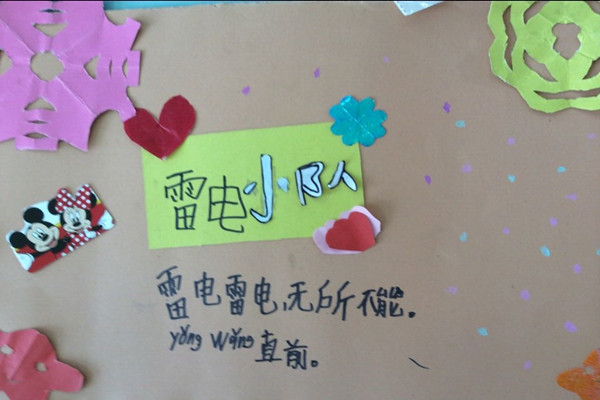 雷电小队
雷电雷电,无所不能。
yǒng wǎng直前。